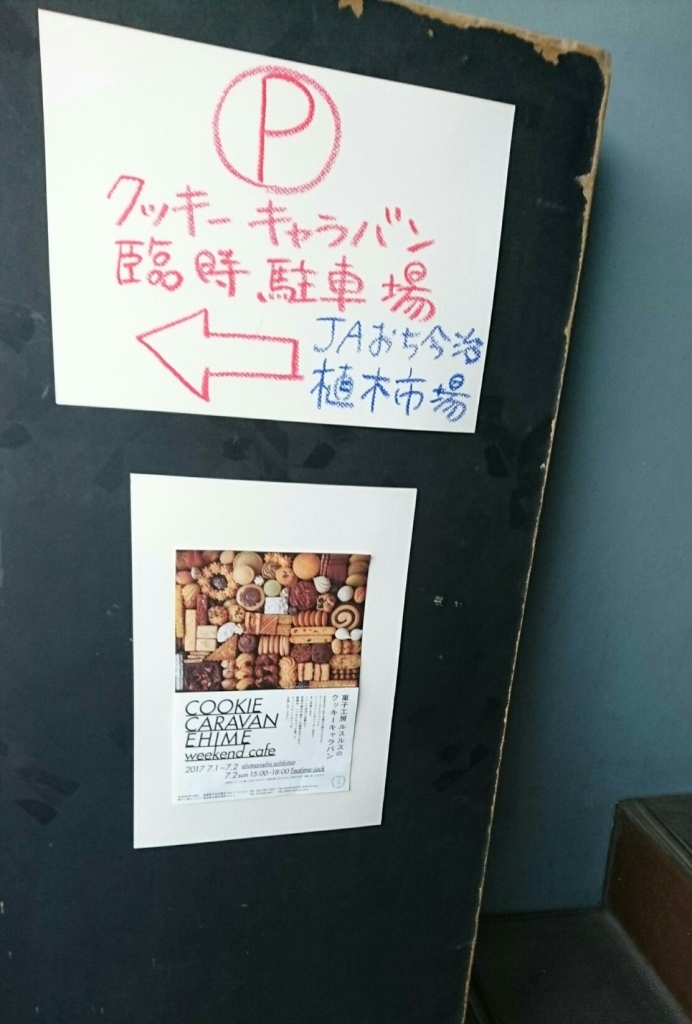 P
クッキーキャラバン
臨時駐車場
JAおち今治
植木市場
COOKIE
CARAVAN
EHIME
weekend cafe
2017 7.1-7.2 photographic exhibition
7.2 sun 15:00-18:00 Teatime Jack
菓子工房ルスルスの
クッキーキャラバン